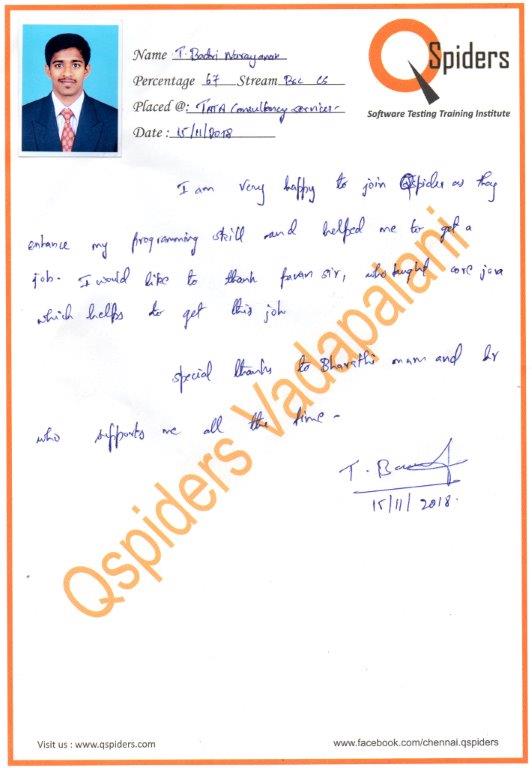 Name T. Badri Narayanan
Percentage 67 Stream BSC CS
Placed @: TATA Consultancy services-
Date : 15/11/2018
QSpiders
Software Testing Training Institute
I am very happy to join Qspider as they
enhance my programming skill and helped me to get a
job. I would like to thank pavan sir, who taught core java
which helps to get this job
special thanks to Bharathi mam and hr
who supports me all the time-
T.
15/11/2018.
Qspiders Vadapalani
Visit us : www.qspiders.com
www.facebook.com/chennai.qspiders